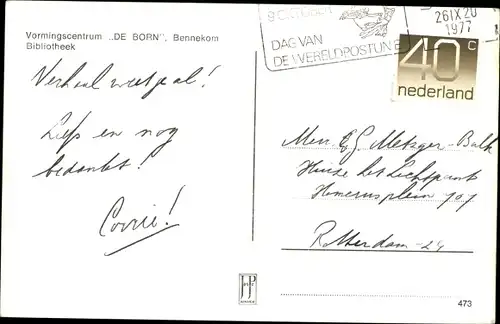 Vormingscentrum „DE BORN”, Bennekom
Bibliotheek
9 OKTOBER
DAG VAN
DE WERELDPOSTUNIE
26 IX 20
1977
40 c
nederland
Verhaal weet je al!
Liefs en nog
bedankt!
Corrie!
Mevr. E.G. Metzger-Balk
Huize het Lichtpunt
Homerusplein 101
Rotterdam-24
JosPé
473